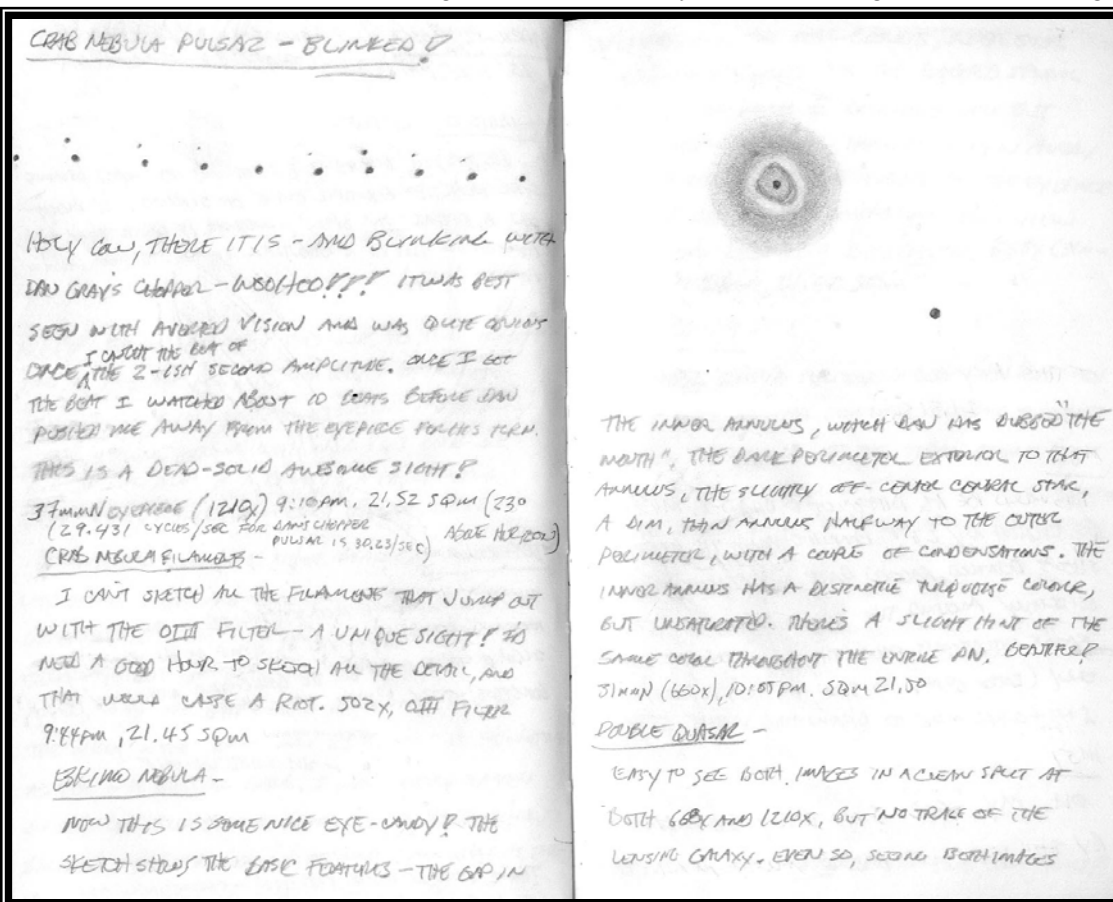 CRAB NEBULA PULSAR – BLINKED!
HOLY COW, THERE IT IS – AND BLINKING WITH
DAN GRAY'S CHOPPER – WOOHOO!!! IT WAS BEST
SEEN WITH AVERTED VISION AND WAS QUITE OBVIOUS
ONCE I CAUGHT THE BEAT OF THE 2-ISH SECOND AMPLITUDE. ONCE I GOT
THE BEAT I WATCHED ABOUT 10 BEATS BEFORE DAN
PUSHED ME AWAY FROM THE EYEPIECE FOR HIS TURN.
THIS IS A DEAD-SOLID AWESOME SIGHT!
37mmN EYEPIECE (1210x) 9:10PM, 21.52 SQM (230
(29.431 CYCLES/SEC FOR DAN'S CHOPPER ABOVE HORIZON)
PULSAR IS 30.23/SEC)
CRAB NEBULA FILAMENTS –
I CAN'T SKETCH ALL THE FILAMENTS THAT JUMP OUT
WITH THE OIII FILTER – A UNIQUE SIGHT! I'D
NEED A GOOD HOUR TO SKETCH ALL THE DETAIL, AND
THAT WOULD CAUSE A RIOT. 502X, OIII FILTER
9:44PM, 21.45 SQM
ESKIMO NEBULA –
NOW THIS IS SOME NICE EYE-CANDY! THE
SKETCH SHOWS THE BASIC FEATURES – THE GAP IN
THE INNER ANNULUS, WHICH DAN HAS DUBBED "THE
MOUTH", THE DARK PERIMETER EXTERIOR TO THAT
ANNULUS, THE SLIGHTLY OFF-CENTER CENTRAL STAR,
A DIM, THIN ANNULUS HALFWAY TO THE OUTER
PERIMETER, WITH A COUPLE OF CONDENSATIONS. THE
INNER ANNULUS HAS A DISTINCTIVE TURQUOISE COLOUR,
BUT UNSATURATED. THERE'S A SLIGHT HINT OF THE
SAME COLOR THROUGHOUT THE ENTIRE PN. BEAUTIFUL!
31mmN (660x), 10:05PM. SQM 21.50
DOUBLE QUASAR –
EASY TO SEE BOTH IMAGES IN A CLEAN SPLIT AT
BOTH AND 1210X, BUT NO TRACE OF THE
LENSING GALAXY. EVEN SO, SEEING BOTH IMAGES